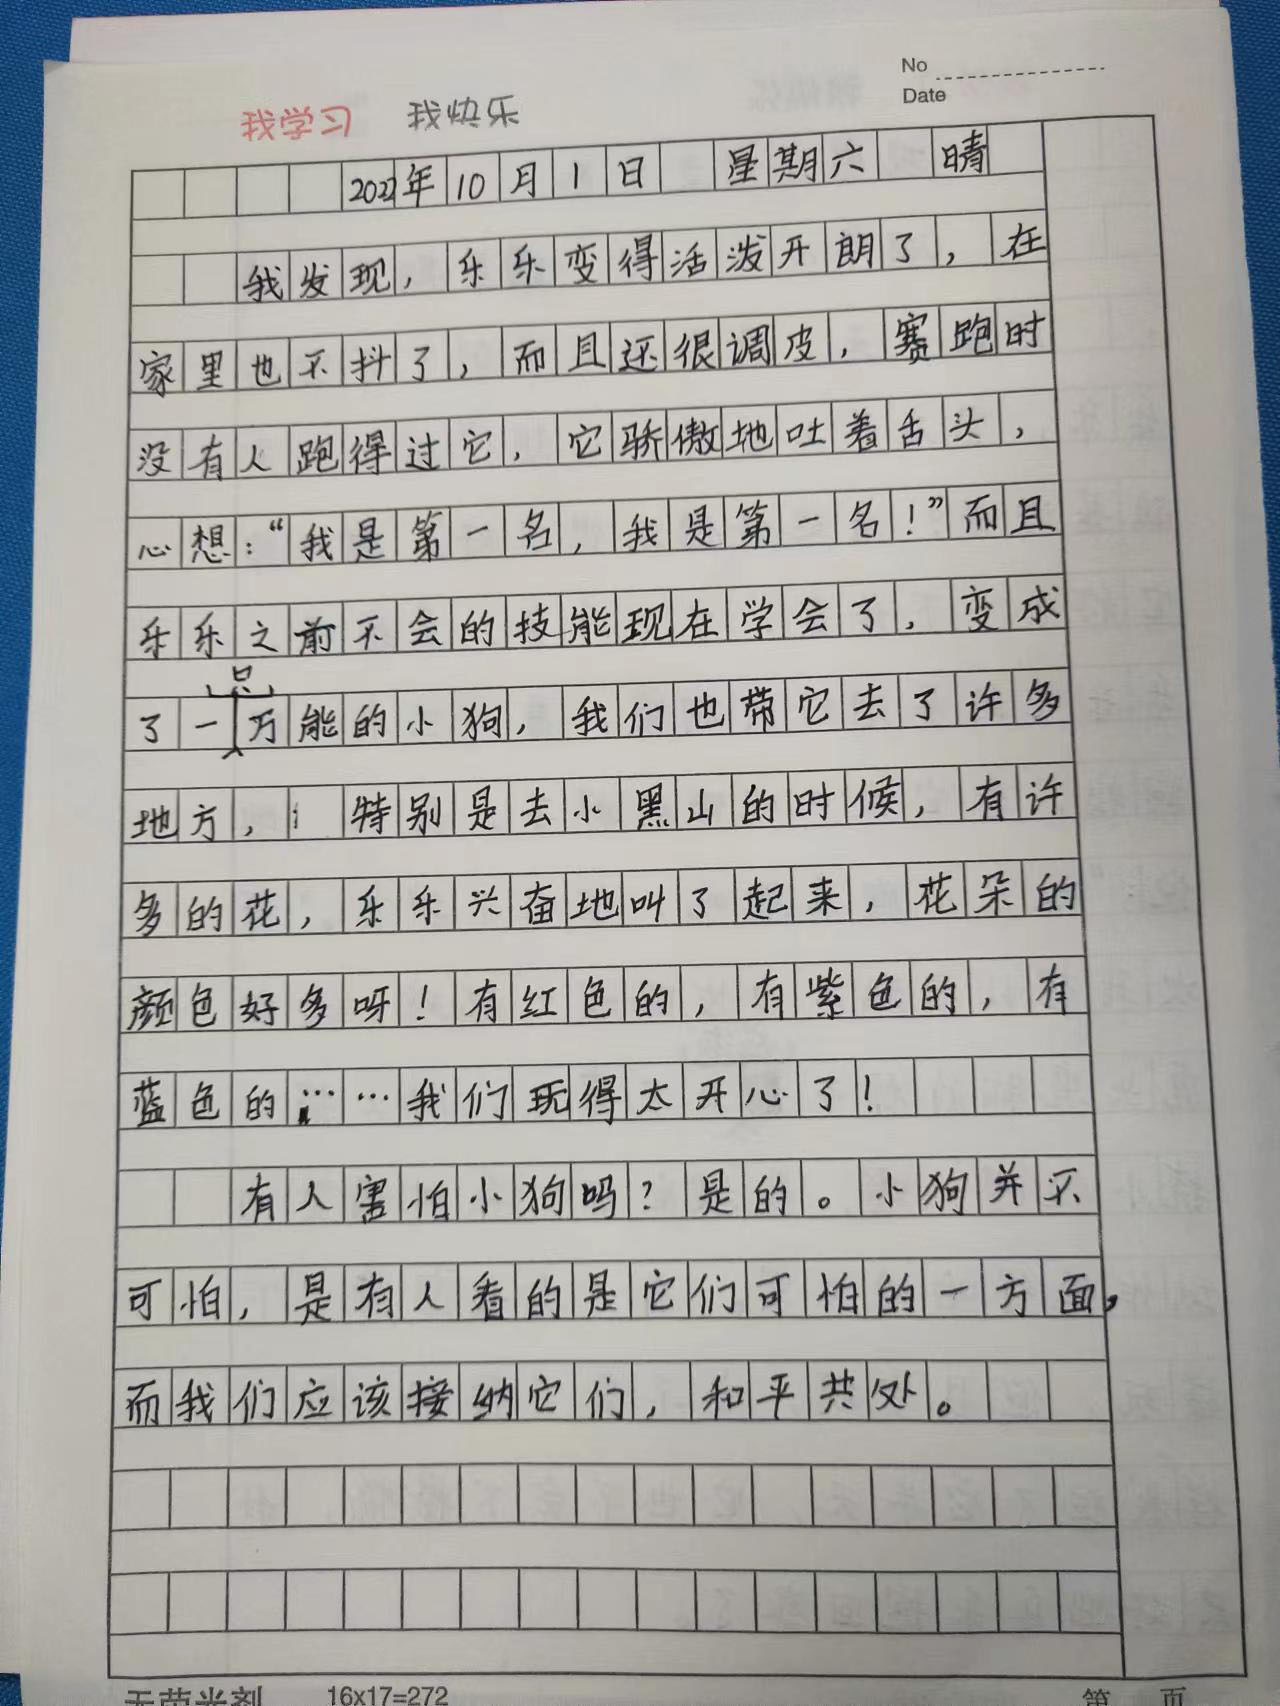 No
Date
我学习 我快乐
2022年10月1日 星期六 晴
我发现，乐乐变得活泼开朗了，在
家里也不抖了，而且还很调皮，赛跑时
没有人跑得过它，它骄傲地吐着舌头，
心想：“我是第一名，我是第一名！”而且
乐乐之前不会的技能现在学会了，变成
了一只万能的小狗，我们也带它去了许多
地方，特别是去小黑山的时候，有许
多的花，乐乐兴奋地叫了起来，花朵的
颜色好多呀！有红色的，有紫色的，有
蓝色的……我们玩得太开心了！
有人害怕小狗吗？是的。小狗并不
可怕，是有人看的是它们可怕的一方面，
而我们应该接纳它们，和平共处。
无荧光剂 16x17=272 第 页